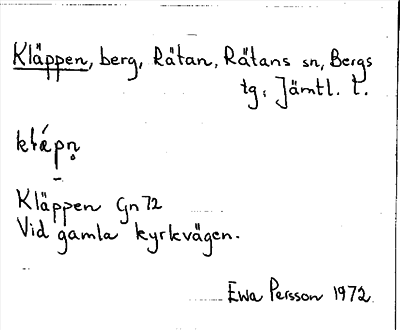 Kläppen, berg, Rätan, Rätans sn, Bergs
tg, Jämtl. l.
klápn̥
Kläppen Gn 72
Vid gamla kyrkvägen.
Ewa Persson 1972.